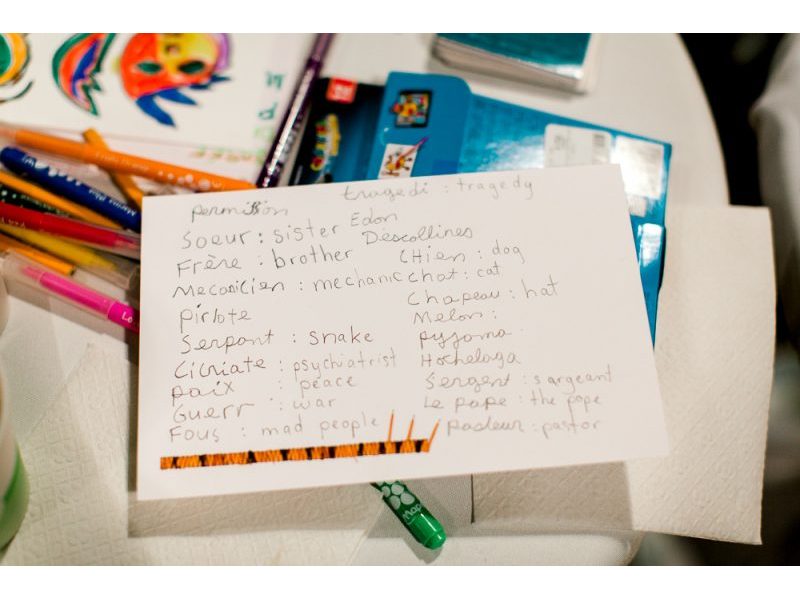 tragedi : tragedy
permission
Soeur : sister
Frère : brother
Mecanicien : mechanic
pirlote
Serpant : snake
Cicriate : psychiatrist
paix : peace
Guerr : war
Fous : mad people
Edon
Descollines
CHien : dog
chat : cat
Chapeau : hat
Melon :
pyjama
Hochelaga
Sergent : sargeant
Le pape : the pope
pasteur : pastor
Map
Lo